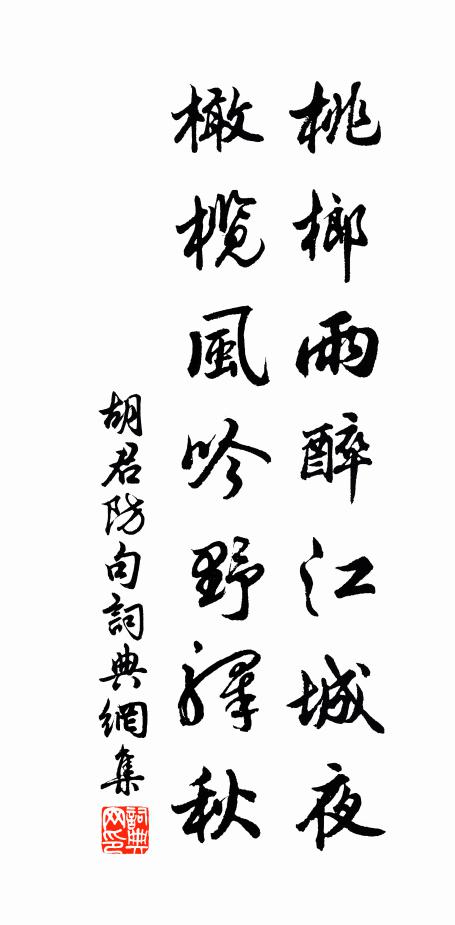 桃榔雨醉江城夜
橄欖風吟野驛秋
胡君防句詞典網集
詞典網印